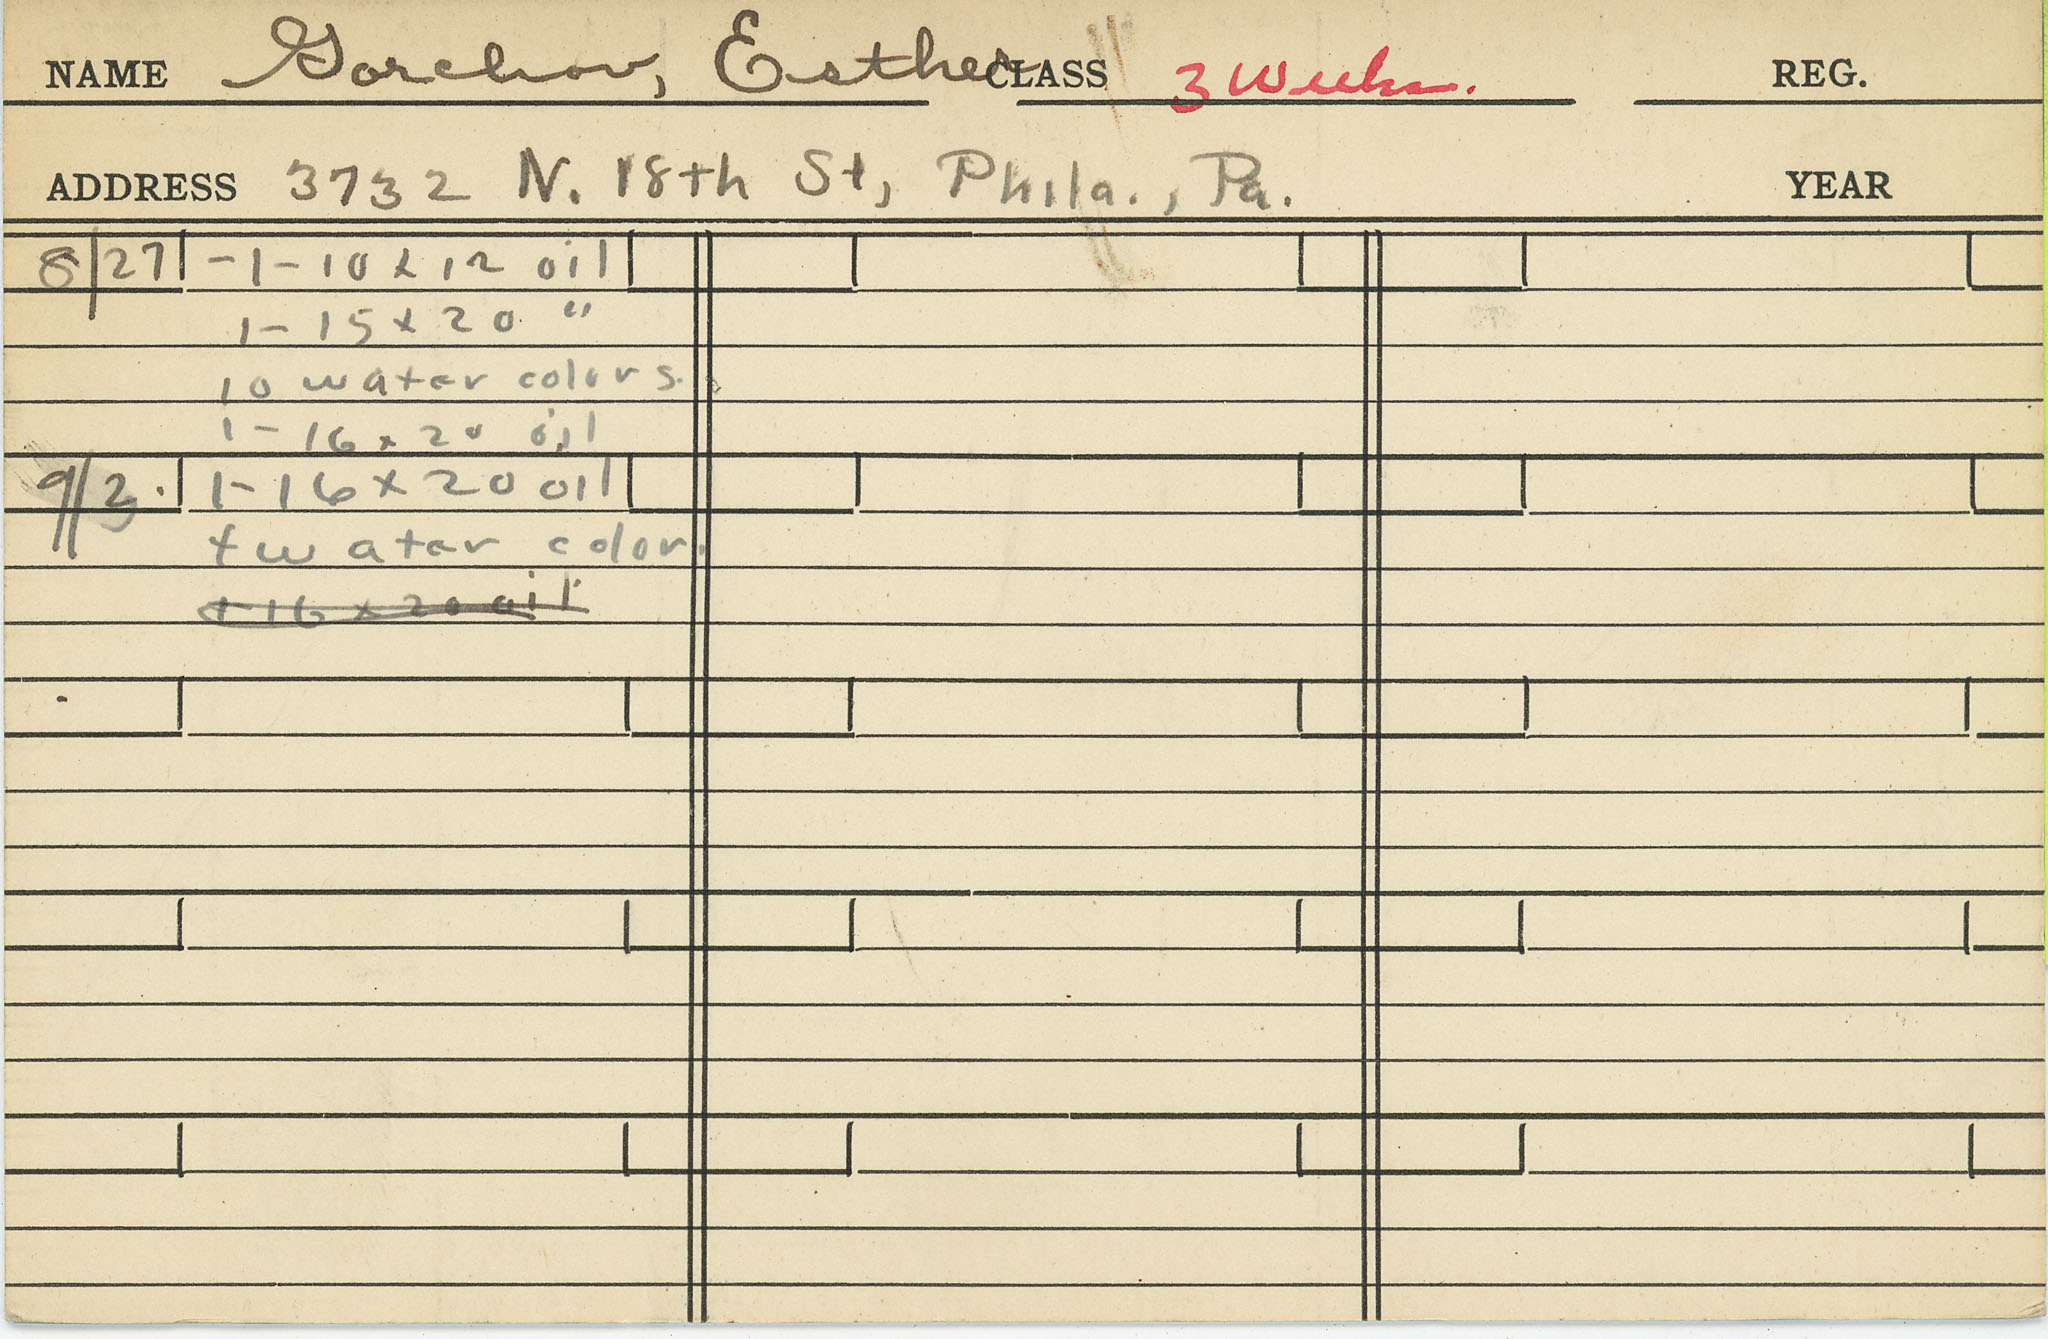 NAME Gorchov, Esther CLASS 3 Weeks. REG.
ADDRESS 3732 N. 18th St, Phila., Pa. YEAR
8/27 -1-10x12 oil
1-15x20 "
10 water colors.
1-16x20 oil
9/2. 1-16x20 oil
water color.
1-16x20 oil